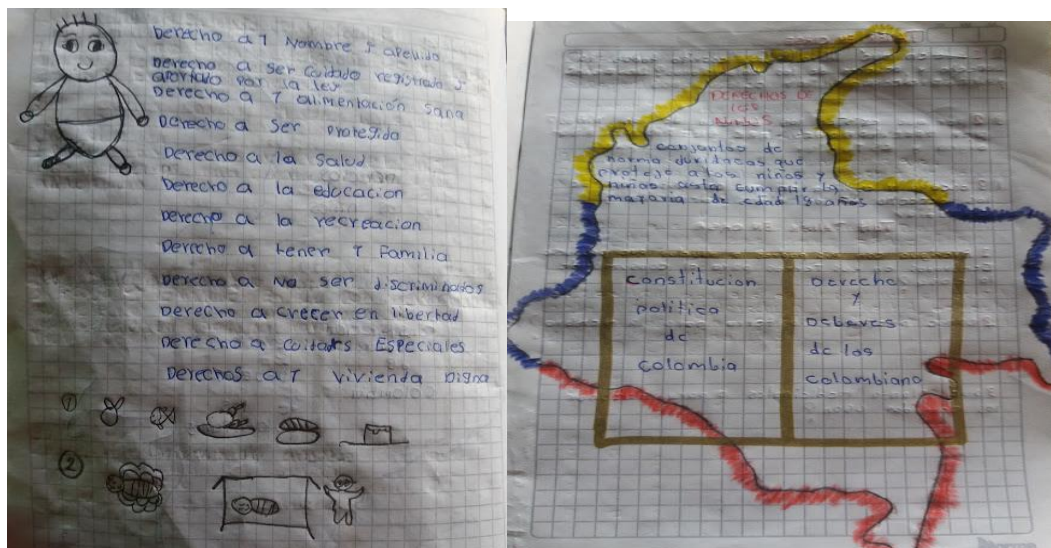 Derecho a 1 Nombre y apellido
Derecho a ser cuidado registrado y
aportado por la ley
Derecho a 1 alimentación sana
Derecho a ser protegido
Derecho a la salud
Derecho a la educacion
Derecho a la recreacion
Derecho a tener 1 Familia
Derecho a No ser discriminados
Derecho a crecer en libertad
Derecho a cuidads Especiales
Derechos a 1 vivienda Digna
1
2
DERECHOS DE
los
NIÑOS
conjuntos de
norma juridacas que
proteje a los niños y
niñas asta cumpir la
mayaria de edad 18 años
constitucion
politica
de
colombia
Derecho
y
Deberes
de los
colombiano